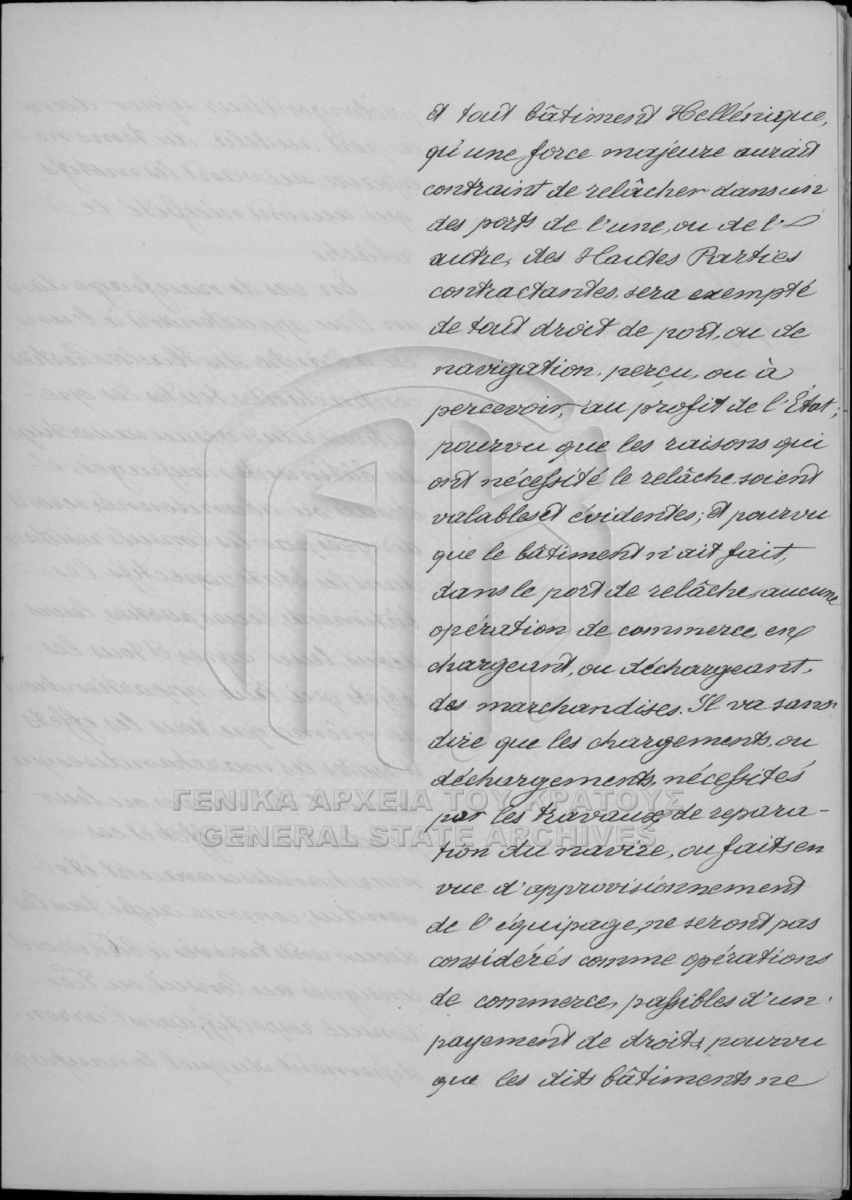 et tout bâtiment Hellénique,
qu'une force majeure aurait
contraint de relâcher dans un
des ports de l'une, ou de l'
autre, des Hautes Parties
contractantes, sera exempté
de tout droit de port, ou de
navigation, perçu, ou à
percevoir, au profit de l'État;
pourvu que les raisons qui
ont nécessité le relâche soient
valables et évidentes; et pourvu
que le bâtiment n'ait fait,
dans le port de relâche, aucune
opération de commerce, en
chargeant, ou déchargeant,
des marchandises. Il va sans
dire que les chargements, ou
déchargements, nécessités
par les travaux de répara-
tion du navire, ou faits en
vue d'approvisionnement
de l'équipage, ne seront pas
considérés comme opérations
de commerce, passibles d'un
payement de droits, pourvu
que les dits bâtiments ne
ΓΕΝΙΚΑ ΑΡΧΕΙΑ ΤΟΥ ΚΡΑΤΟΥΣ
GENERAL STATE ARCHIVES